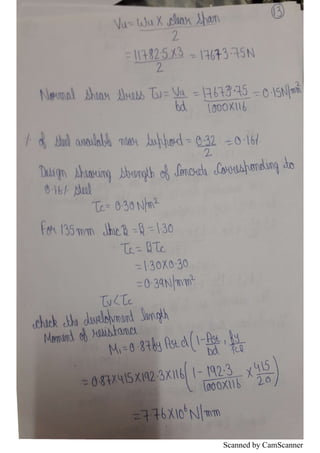 13
Vu = Wu x clear span
2
= 11782.5 x 3 = 17673.75N
2
Normal shear stress τv = Vu = 17673.75 = 0.15N/mm²
bd 1000x116
% of steel available near support = 0.32 = 0.16%
2
Design shearing strength of concrete corresponding to
0.16% steel
τc = 0.30 N/m²
For 135mm thic B = B = 1.30
τc = Bτc
= 1.30x0.30
= 0.39N/mm²
τv < τc
check the development length
Moment of resistance
M1 = 0.87 by Pst d (1 - Pst . fy
bd fck)
= 0.87x415x192.3x116 (1 - 192.3 x 415
1000x116 20)
= 7.76x10⁶ N/mm
Scanned by CamScanner